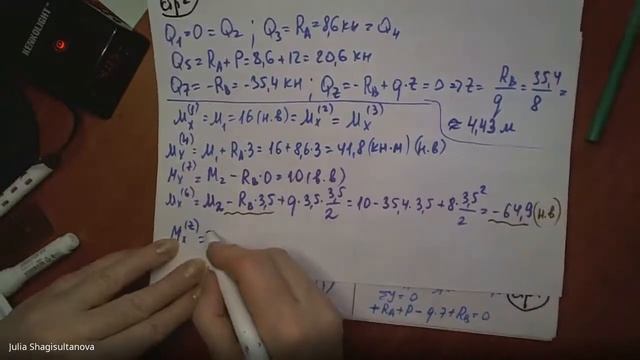 KENKOLIGHT
стр2
Q₁=0=Q₂ ; Q₃=R_A=8,6кн=Q₄
Q₅=R_A+P=8,6+12=20,6 кн
Q₇=-R_B=-35,4 кн ; Q_z=-R_B+q·z=0⇒z= R_B/q = 35,4/8 =
≈ 4,43 м
M_x⁽¹⁾=M₁=16(н.в)=M_x⁽²⁾=M_x⁽³⁾
M_x⁽⁴⁾=M₁+R_A·3=16+8,6·3=41,8(кн·м)(н.в)
M_x⁽⁷⁾=M₂-R_B·0=10(в.в)
M_x⁽⁶⁾=M₂-R_B·3,5+q·3,5·3,5/2=10-35,4·3,5+8·3,5²/2=-64,9(н.в)
M_x⁽ᶻ⁾=
=0
+R_A+P-q·7+R_B=0
Julia Shagisultanova